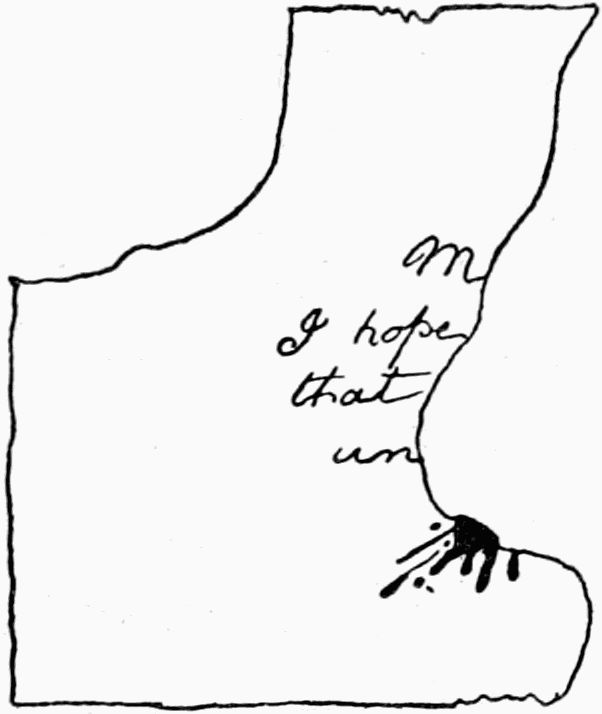 M
I hope
that
un